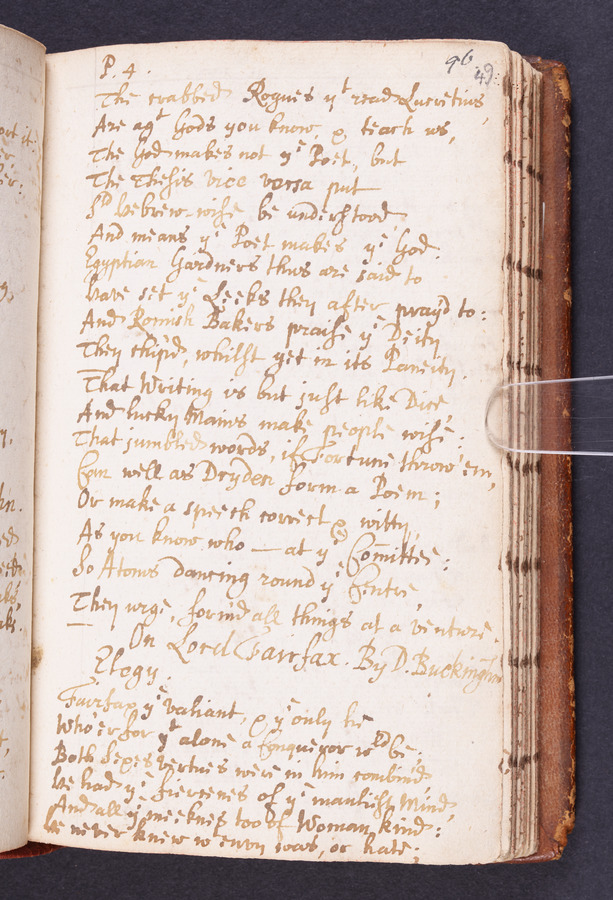 P. 4.
96
49
The crabbed Rogues yt read Lucretius,
Are agt Gods you know, & teach us,
The God makes not ye Poet, but
The Thesis vice versa put
Sd Hebrew-wise be understood,
And means ye Poet makes ye God.
Egyptian Gardners thus are said to
Have set ye Leeks they after pray'd to:
And Romish Bakers praise ye Deity
They chip'd, whilst yet in its Paneity.
That Writing is but just like Dice
And lucky Mains make people wise:
That jumbled words, if Fortune throw 'em,
Can well as Dryden form a Poem;
Or make a speech correct & witty,
As you know who — at ye Comittee;
So Atoms dancing round ye Centre,
They urge, form'd all things at a venture.
On Lord Fairfax. By D. Buckingham
Elogy.
Fairfax ye valiant, & ye only he
Who e'er for yt alone a Conqueror wld be.
Both Sexes vertues were in him combin'd
He had ye fiercenes of ye manliest Mind,
And all ye meeknes too of Woman kind:
He never knew w envy was, or hate;